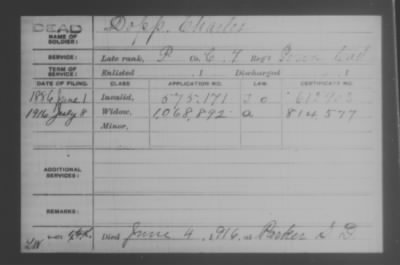 DEAD
NAME OF SOLDIER: Dopp, Charles
SERVICE: Late rank, P Co. C. 7 Reg't Iowa Cav
TERM OF SERVICE: Enlisted , 1 Discharged , 1
DATE OF FILING. CLASS APPLICATION NO. LAW. CERTIFICATE NO.
1886 June 1 Invalid, 575,171
1916 July 8 Widow, 1,068,892 a 814,577
Minor,
ADDITIONAL SERVICES:
REMARKS:
Died June 4, 1916, at Parker S D